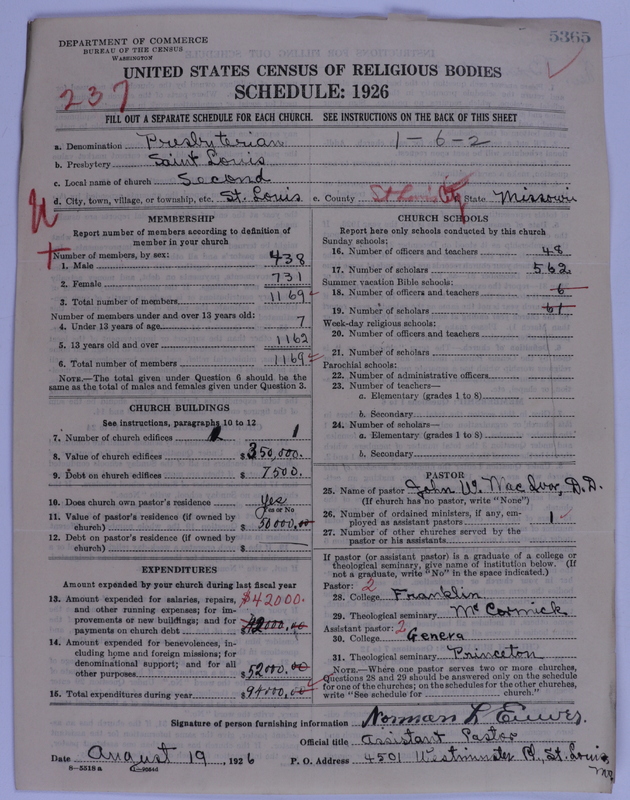 5365
DEPARTMENT OF COMMERCE
BUREAU OF THE CENSUS
WASHINGTON
UNITED STATES CENSUS OF RELIGIOUS BODIES
237
SCHEDULE: 1926
FILL OUT A SEPARATE SCHEDULE FOR EACH CHURCH. SEE INSTRUCTIONS ON THE BACK OF THIS SHEET
a. Denomination Presbyterian 1-6-2
b. Presbytery Saint Louis
c. Local name of church Second
d. City, town, village, or township, etc. St. Louis e. County St Louis City State Missouri
MEMBERSHIP
Report number of members according to definition of
member in your church
Number of members, by sex:
1. Male 438
2. Female 731
3. Total number of members 1169
Number of members under and over 13 years old:
4. Under 13 years of age 7
5. 13 years old and over 1162
6. Total number of members 1169
NOTE.—The total given under Question 6 should be the
same as the total of males and females given under Question 3.
CHURCH BUILDINGS
See instructions, paragraphs 10 to 12
7. Number of church edifices 1
8. Value of church edifices $350,000.
9. Debt on church edifices $7500.
10. Does church own pastor's residence Yes
Yes or No
11. Value of pastor's residence (if owned by
church) $50000,00
12. Debt on pastor's residence (if owned by
church) $
EXPENDITURES
Amount expended by your church during last fiscal year
13. Amount expended for salaries, repairs, $42000.
and other running expenses; for im-
provements or new buildings; and for
payments on church debt $42000.00
14. Amount expended for benevolences, in-
cluding home and foreign missions; for
denominational support; and for all
other purposes $52000.00
15. Total expenditures during year $94000,00
CHURCH SCHOOLS
Report here only schools conducted by this church
Sunday schools:
16. Number of officers and teachers 48
17. Number of scholars 562
Summer vacation Bible schools:
18. Number of officers and teachers 6
19. Number of scholars 61
Week-day religious schools:
20. Number of officers and teachers
21. Number of scholars
Parochial schools:
22. Number of administrative officers
23. Number of teachers—
a. Elementary (grades 1 to 8)
b. Secondary
24. Number of scholars—
a. Elementary (grades 1 to 8)
b. Secondary
PASTOR
25. Name of pastor John W. MacIvor, D.D.
(If church has no pastor, write "None")
26. Number of ordained ministers, if any, em-
ployed as assistant pastors 1
27. Number of other churches served by the
pastor or his assistants
If pastor (or assistant pastor) is a graduate of a college or
theological seminary, give name of institution below. (If
not a graduate, write "No" in the space indicated.)
Pastor: 2
28. College Franklin
29. Theological seminary McCormick
Assistant pastor: 2
30. College Geneva
31. Theological seminary Princeton
NOTE.—Where one pastor serves two or more churches,
Questions 28 and 29 should be answered only on the schedule
for one of the churches; on the schedules for the other churches,
write "See schedule for church."
Signature of person furnishing information Norman L Euwer.
Official title Assistant Pastor
Date August 19, 1926 P. O. Address 4501 Westminster Pl, St. Louis, Mo
8-5518 a